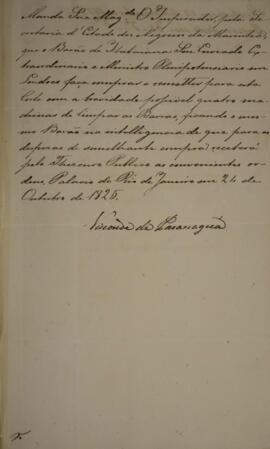 Manda Sua Mag.de O Imperador, pela Se-
cretaria d'Estado dos Negocios da Marinha,
que o Barão de Itabaiana Seu Enviado Ex-
traordinario e Ministro Plenipotenciario em
Londres faça comprar e remetter para esta
Corte com a brevidade possivel quatro ma-
chinas de limpar as Barras, ficando o mes-
mo Barão na intelligencia de que para as
despezas de semelhante compra receberá
pelo Thesouro Publico as convenientes or-
dens. Palacio do Rio de Janeiro em 24 de
Outubro de 1825.
Visconde de Paranaguá